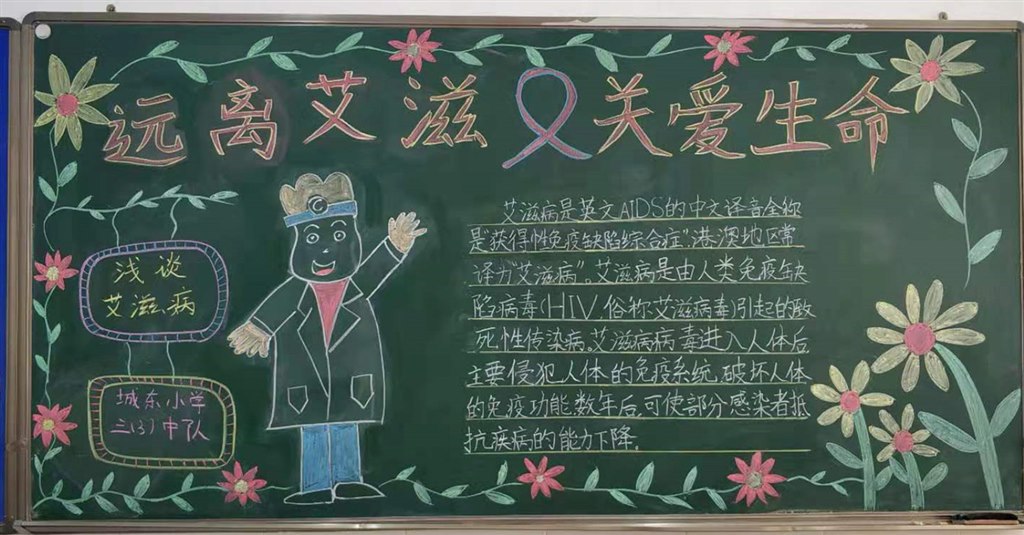 远离艾滋 关爱生命
浅谈
艾滋病
城东小学
三(3)中队
艾滋病是英文AIDS的中文译音全称
是"获得性免疫缺陷综合症",港澳地区常
译为"艾滋病"。艾滋病是由人类免疫缺
陷病毒(HIV俗称艾滋病毒)引起的致
死性传染病,艾滋病病毒进入人体后
主要侵犯人体的免疫系统,破坏人体
的免疫功能,数年后,可使部分感染者抵
抗疾病的能力下降。